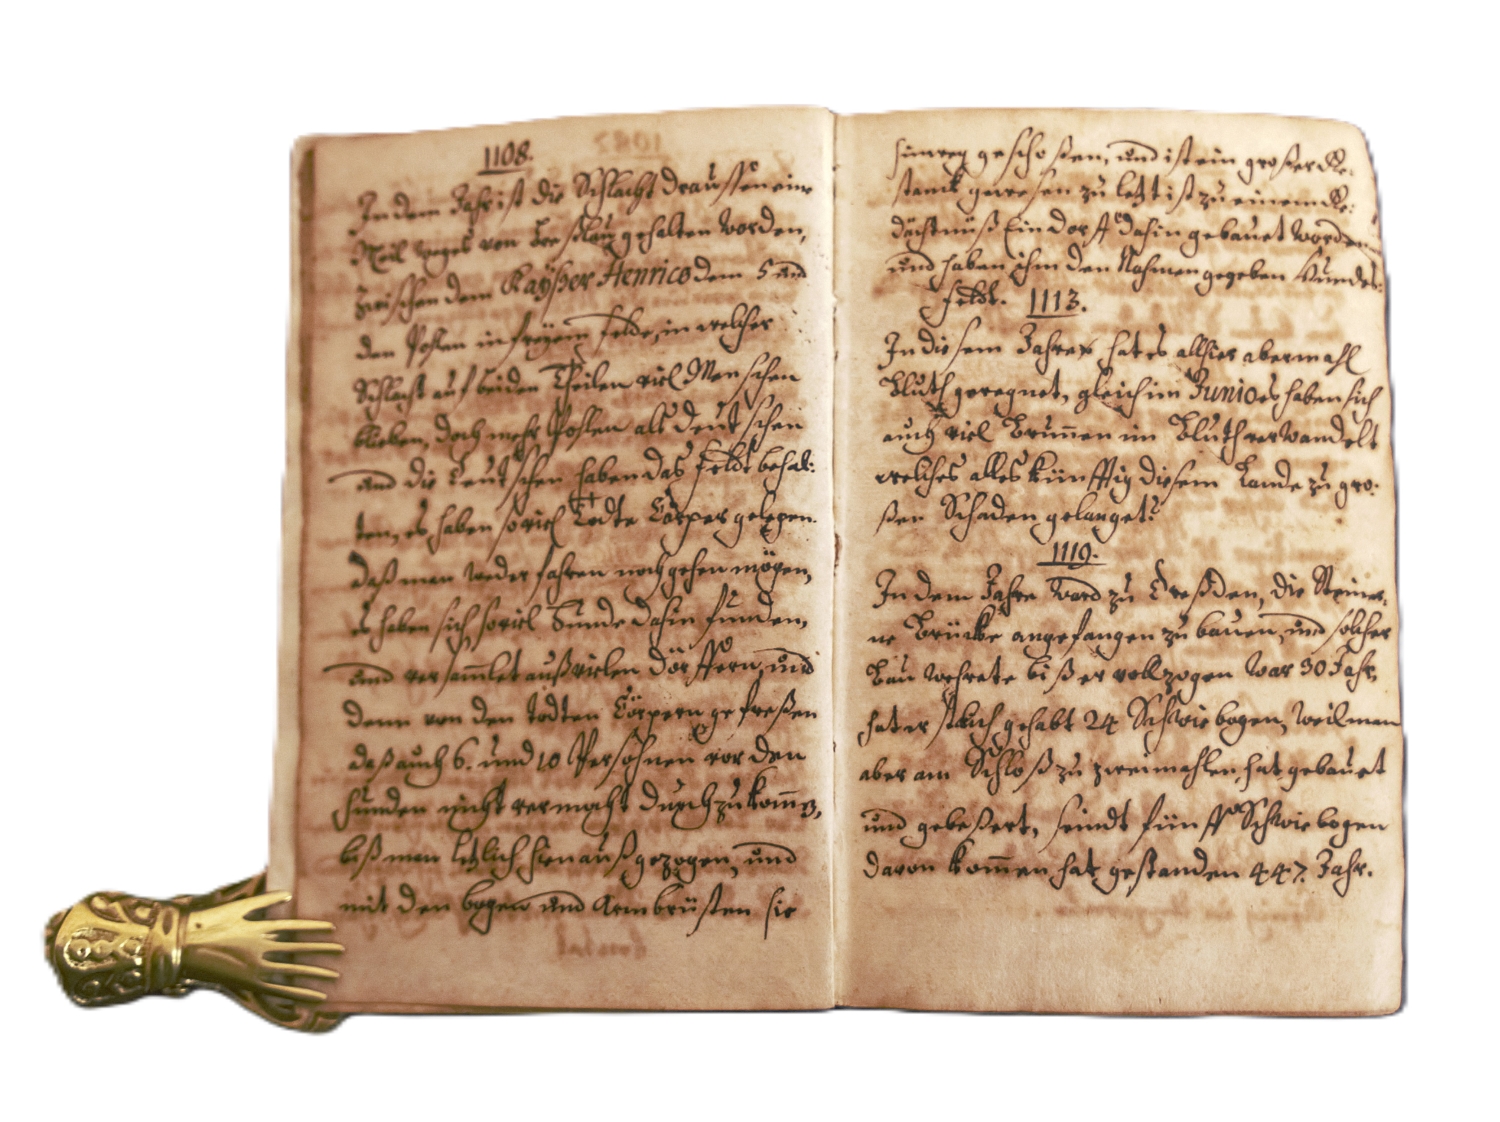 1108.
In dem Jahr ist die Schlacht draussen eine
Meil weges von Breßlau gehalten worden,
zwischen dem Kayßer Henrico dem 5 und
den Pohlen in freyem felde, in welcher
Schlacht auf beiden Theilen viel Menschen
blieben, doch mehr Pohlen als deutschen
und die Teutschen haben das feldt behal:
ten, es haben so viel Todte Cörper gelegen
daß man weder fahren noch gehen mögen,
Es haben sich so viel Hunde dahin funden,
und versamlet auß vielen dörffern, und
denn von den todten Cörpern gefreßen
daß auch 6. und 10 Persohnen vor den
hunden nicht vermocht durch zu kommen,
biß man letzlich hienauß gezogen, und
mit den bogen und Armbrüsten sie
hinweg geschoßen, und ist ein großer Ge:
stanck gewesen zu letzt ist zu einem Ge:
dächtnüß Ein dorff dahin gebauet worden
und haben ihm den Nahmen gegeben Hundes:
feldt. 1113.
In diesem Jahre hat es allhier abermahl
Bluth geregnet, gleich im Junio es haben sich
auch viel Brunnen in Bluth verwandelt
welches alles künfftig diesem Lande zu gro:
ßen Schaden gelanget.
1119.
In dem Jahre ward zu Dreßden, die Steiner:
ne Brücke angefangen zu bauen, und solcher
Bau wehrete biß er vollzogen war 30 Jahr,
hat er gehabt 24 Schwiebogen, weil man
aber am Schloß zu zweimahlen hat gebauet
und gebeßert, seindt fünff Schwiebogen
davon kommen hat gestanden 447. Jahr.